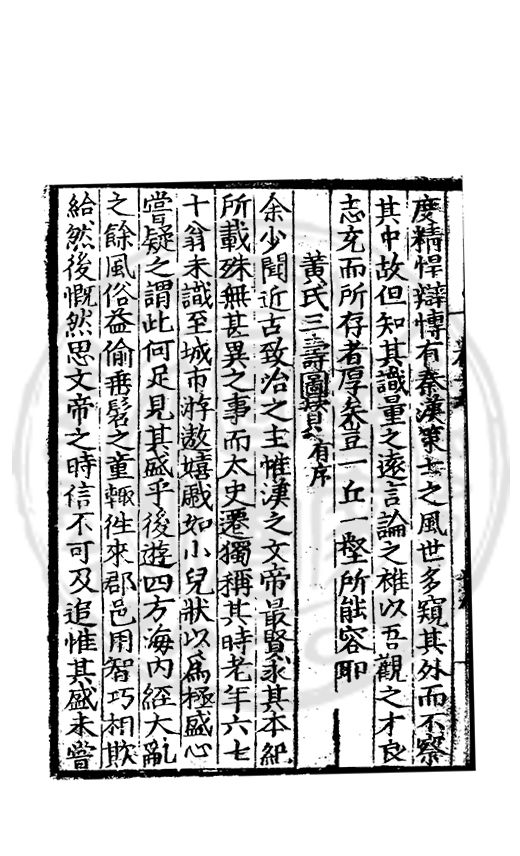 度精悍辯博有秦漢策士之風世多窺其外而不察
其中故但知其識量之遠言論之雄以吾觀之才良
志充而所存者厚矣豈一丘一壑所能容耶
黃氏三壽圖贊有序
余少聞近古致治之主惟漢之文帝最賢求其本紀
所載殊無甚異之事而太史遷獨稱其時老年六七
十翁未識至城市游敖嬉戲如小兒狀以為極盛心
嘗疑之謂此何足見其盛乎後遊四方海內經大亂
之餘風俗益偷垂髫之童輙徃來郡邑用智巧相欺
紿然後慨然思文帝之時信不可及追惟其盛未嘗